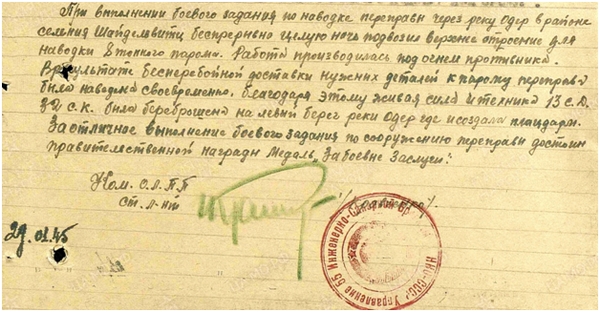 При выполнении боевого задания по наводке переправы через реку Одер в районе
селения Шайдельвитц беспрерывно целую ночь подвозил верхнее строение для
наводки 8 тонного парома. Работа производилась под огнем противника.
В результате бесперебойной доставки нужных деталей к парому переправа
была наведена своевременно, благодаря этому живая сила и техника 13 с.д.
с.к. была переброшена на левый берег реки Одер где и создала плацдарм.
За отличное выполнение боевого задания по сооружению переправы достоин
правительственной награды Медаль "За боевые Заслуги".
Ком.
Ст. л-нт
45
НКО-СССР Управление Инженерно-Саперной бр